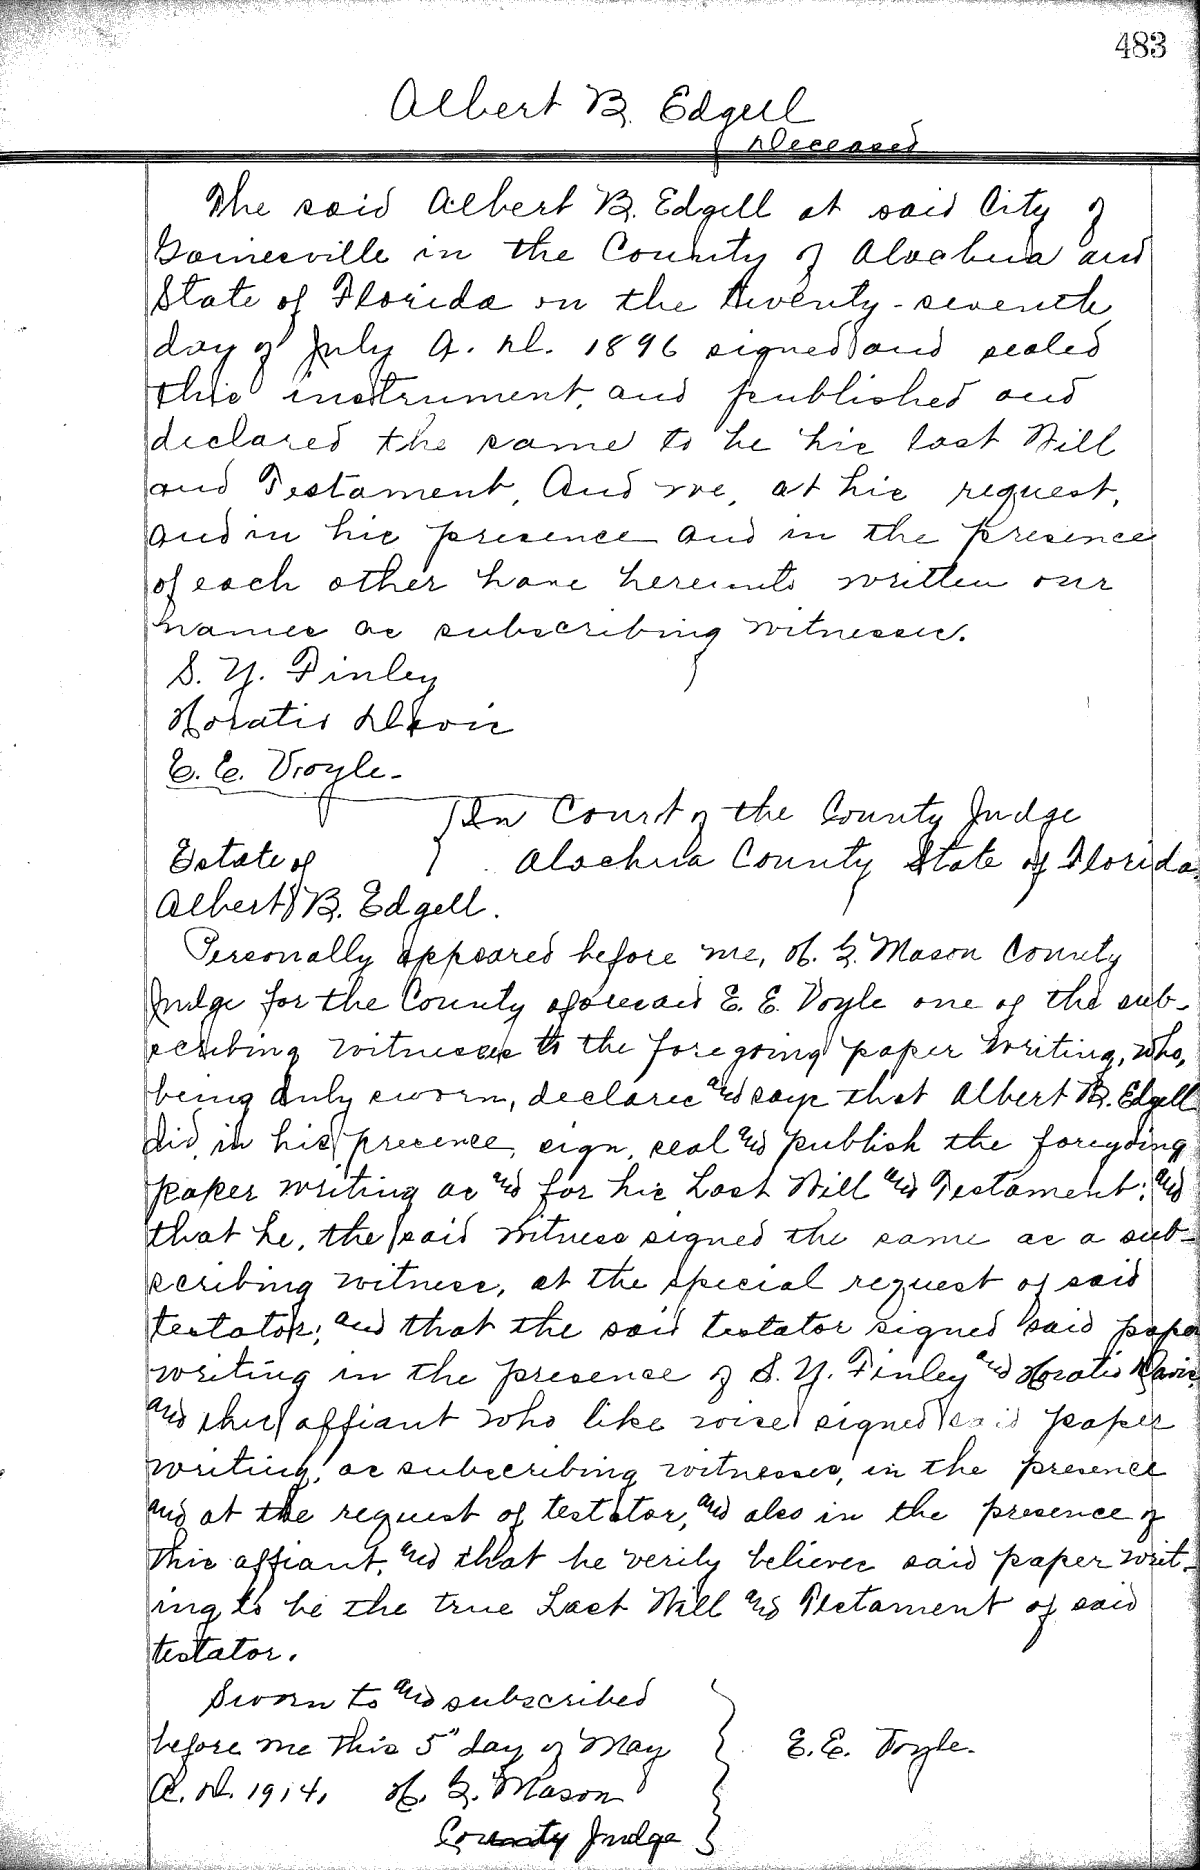 483
Albert B. Edgell
Deceased
The said Albert B. Edgell at said City of
Gainesville in the County of Alachua and
State of Florida on the twenty-seventh
day of July A. D. 1896 signed and sealed
this instrument, and published and
declared the same to be his last Will
and Testament, And we, at his request,
and in his presence and in the presence
of each other have hereunto written our
names as subscribing witnesses.
S. Y. Finley
Horatio Davis
E. E. Voyle-
In Court of the County Judge
Estate of Alachua County State of Florida.
Albert B. Edgell.
Personally appeared before me, H. G. Mason County
Judge for the County aforesaid E. E. Voyle one of the sub-
scribing witnesses to the foregoing paper writing, who,
being duly sworn, declares and says that Albert B. Edgell
did, in his presence, sign, seal and publish the foregoing
paper writing as and for his Last Will and Testament; and
that he, the said witness signed the same as a sub-
scribing witness, at the special request of said
testator; and that the said testator signed said paper
writing in the presence of S. Y. Finley and Horatio Davis,
and this affiant who like wise signed said paper
writing, as subscribing witnesses, in the presence
and at the request of testator, and also in the presence of
this affiant, and that he verily believes said paper writ-
ing to be the true Last Will and Testament of said
testator.
Sworn to and subscribed
before me this 5" day of May E. E. Voyle.
A. D. 1914. H. G. Mason
County Judge